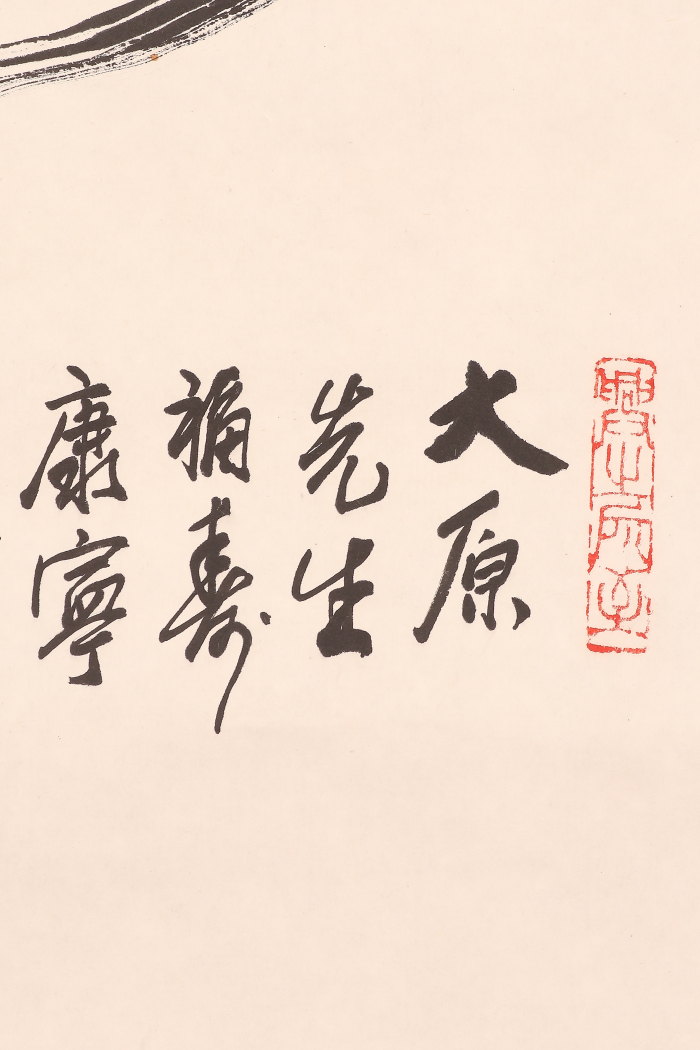 大原
先生
福寿
康寧